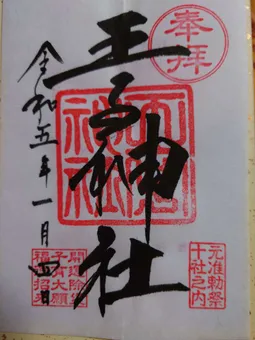 奉拝
王子神社
令和五年一月四日
元准勅祭
十社之内
開運除災
子育大願
福徳招来
王子神社